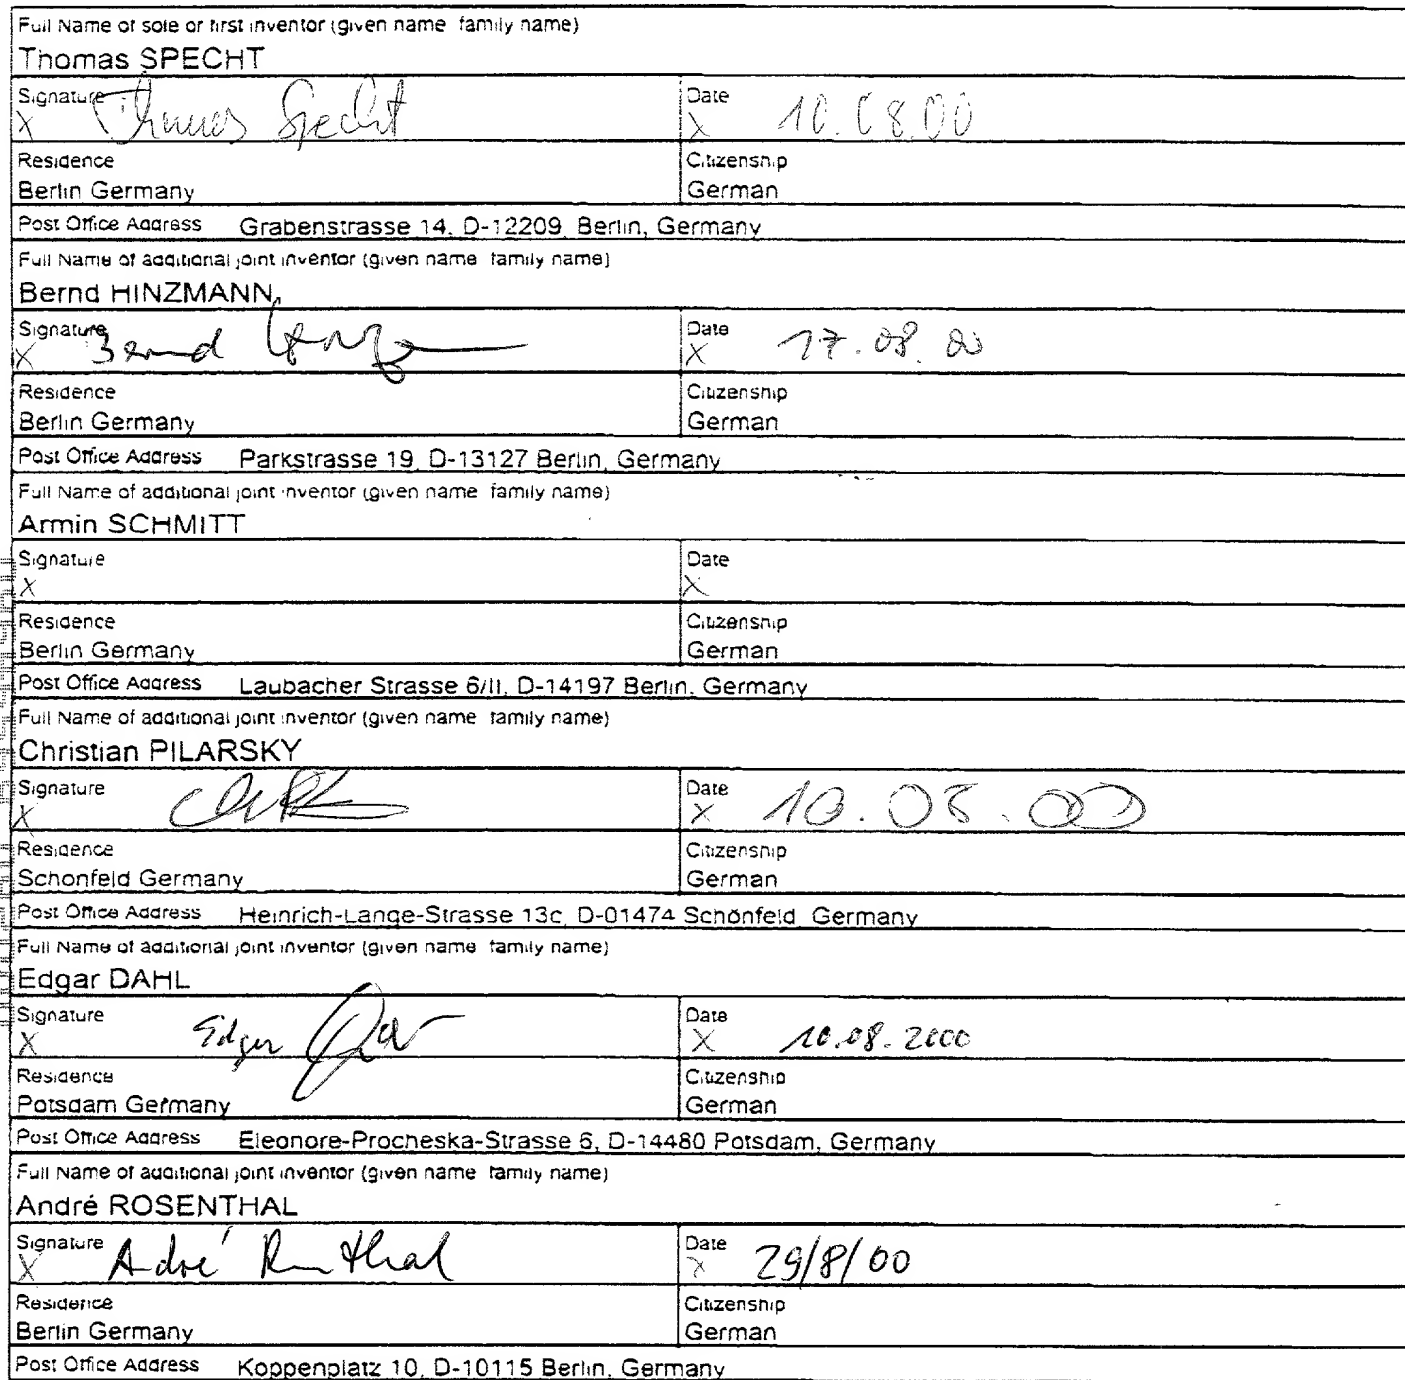 Full Name of sole or first inventor (given name family name)
Thomas SPECHT
Signature Date
X Thomas Specht X 10.08.00
Residence Citizenship
Berlin Germany German
Post Office Address Grabenstrasse 14, D-12209 Berlin, Germany
Full Name of additional joint inventor (given name family name)
Bernd HINZMANN
Signature Date
X Bernd X 17.08.00
Residence Citizenship
Berlin Germany German
Post Office Address Parkstrasse 19 D-13127 Berlin, Germany
Full Name of additional joint inventor (given name family name)
Armin SCHMITT
Signature Date
X X
Residence Citizenship
Berlin Germany German
Post Office Address Laubacher Strasse 6/II, D-14197 Berlin, Germany
Full Name of additional joint inventor (given name family name)
Christian PILARSKY
Signature Date
X X 10.08.00
Residence Citizenship
Schonfeld Germany German
Post Office Address Heinrich-Lange-Strasse 13c, D-01474 Schönfeld Germany
Full Name of additional joint inventor (given name family name)
Edgar DAHL
Signature Date
X Edgar X 10.08.2000
Residence Citizenship
Potsdam Germany German
Post Office Address Eleonore-Procheska-Strasse 6, D-14480 Potsdam, Germany
Full Name of additional joint inventor (given name family name)
André ROSENTHAL
Signature Date
X André Rosenthal X 29/8/00
Residence Citizenship
Berlin Germany German
Post Office Address Koppenplatz 10, D-10115 Berlin, Germany